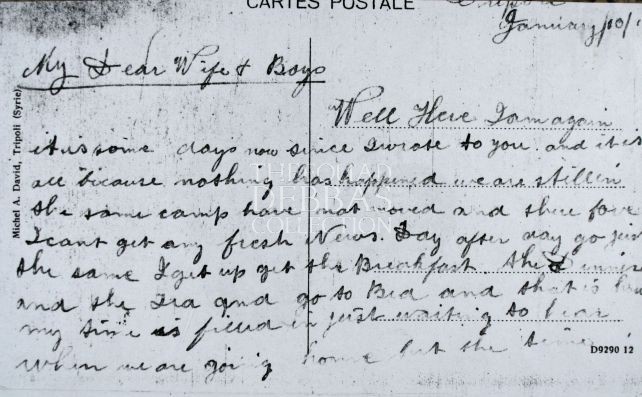 CARTES POSTALE
Tripoli
January 10/
My Dear Wife & Boys
Well Here I am again
it is some days now since I wrote to you. and it is
all bicause nothing has happined we are still in
the same camp have not moved and there fore
I cant get any fresh News. Day after day go just
the same I get up get the Breakfast the Dinner
and the Tea and go to Bed and that is how
my time is filled in just waiting to hear
when we are going home but the time
Michel A. David, Tripoli (Syrie)
D9290 12
THE FOUAD
DEBBAS
COLLECTION